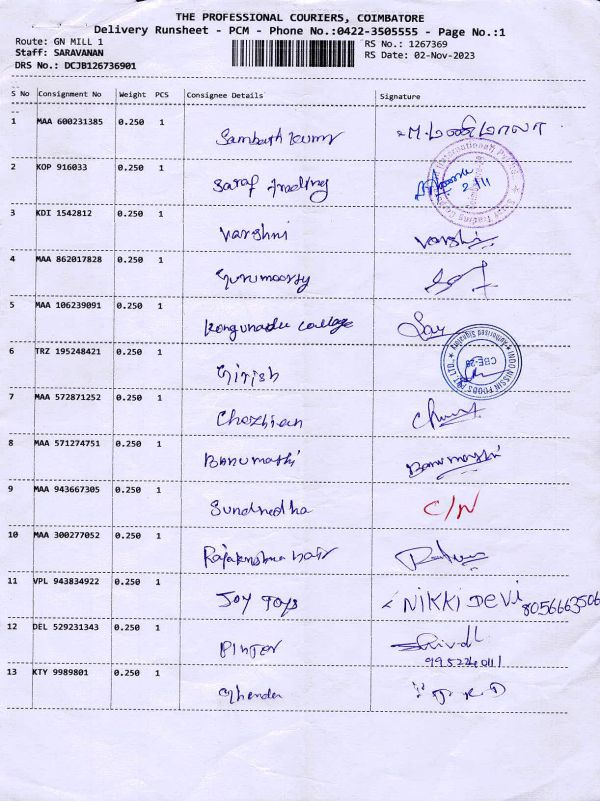 THE PROFESSIONAL COURIERS, COIMBATORE
Delivery Runsheet - PCM - Phone No.:0422-3505555 - Page No.:1
Route: GN MILL 1
Staff: SARAVANAN
DRS No.: DCJB126736901
RS No.: 1267369
RS Date: 02-Nov-2023
S No Consignment No Weight PCS Consignee Details Signature
1 MAA 600231385 0.250 1 Sambath Kumar M. மணிமாலா
2 KOP 916033 0.250 1 Saraf Trading 2/11
3 KDI 1542812 0.250 1 Varshni Varshni
4 MAA 862017828 0.250 1 Gurumoorthy
5 MAA 106239091 0.250 1 Kongunadu College
6 TRZ 195248421 0.250 1 Girish
INDO NISSIN FOODS PVT. LTD. Authorised Signatory CBE-29
7 MAA 572871252 0.250 1 Chozhian
8 MAA 571274751 0.250 1 Banumathi Banumathi
9 MAA 943667305 0.250 1 C/N
10 MAA 300277052 0.250 1 Rajakrishna nair
11 VPL 943834922 0.250 1 Joy Toys NIKKI DEVI 8056663506
12 DEL 529231343 0.250 1
13 KTY 9989801 0.250 1